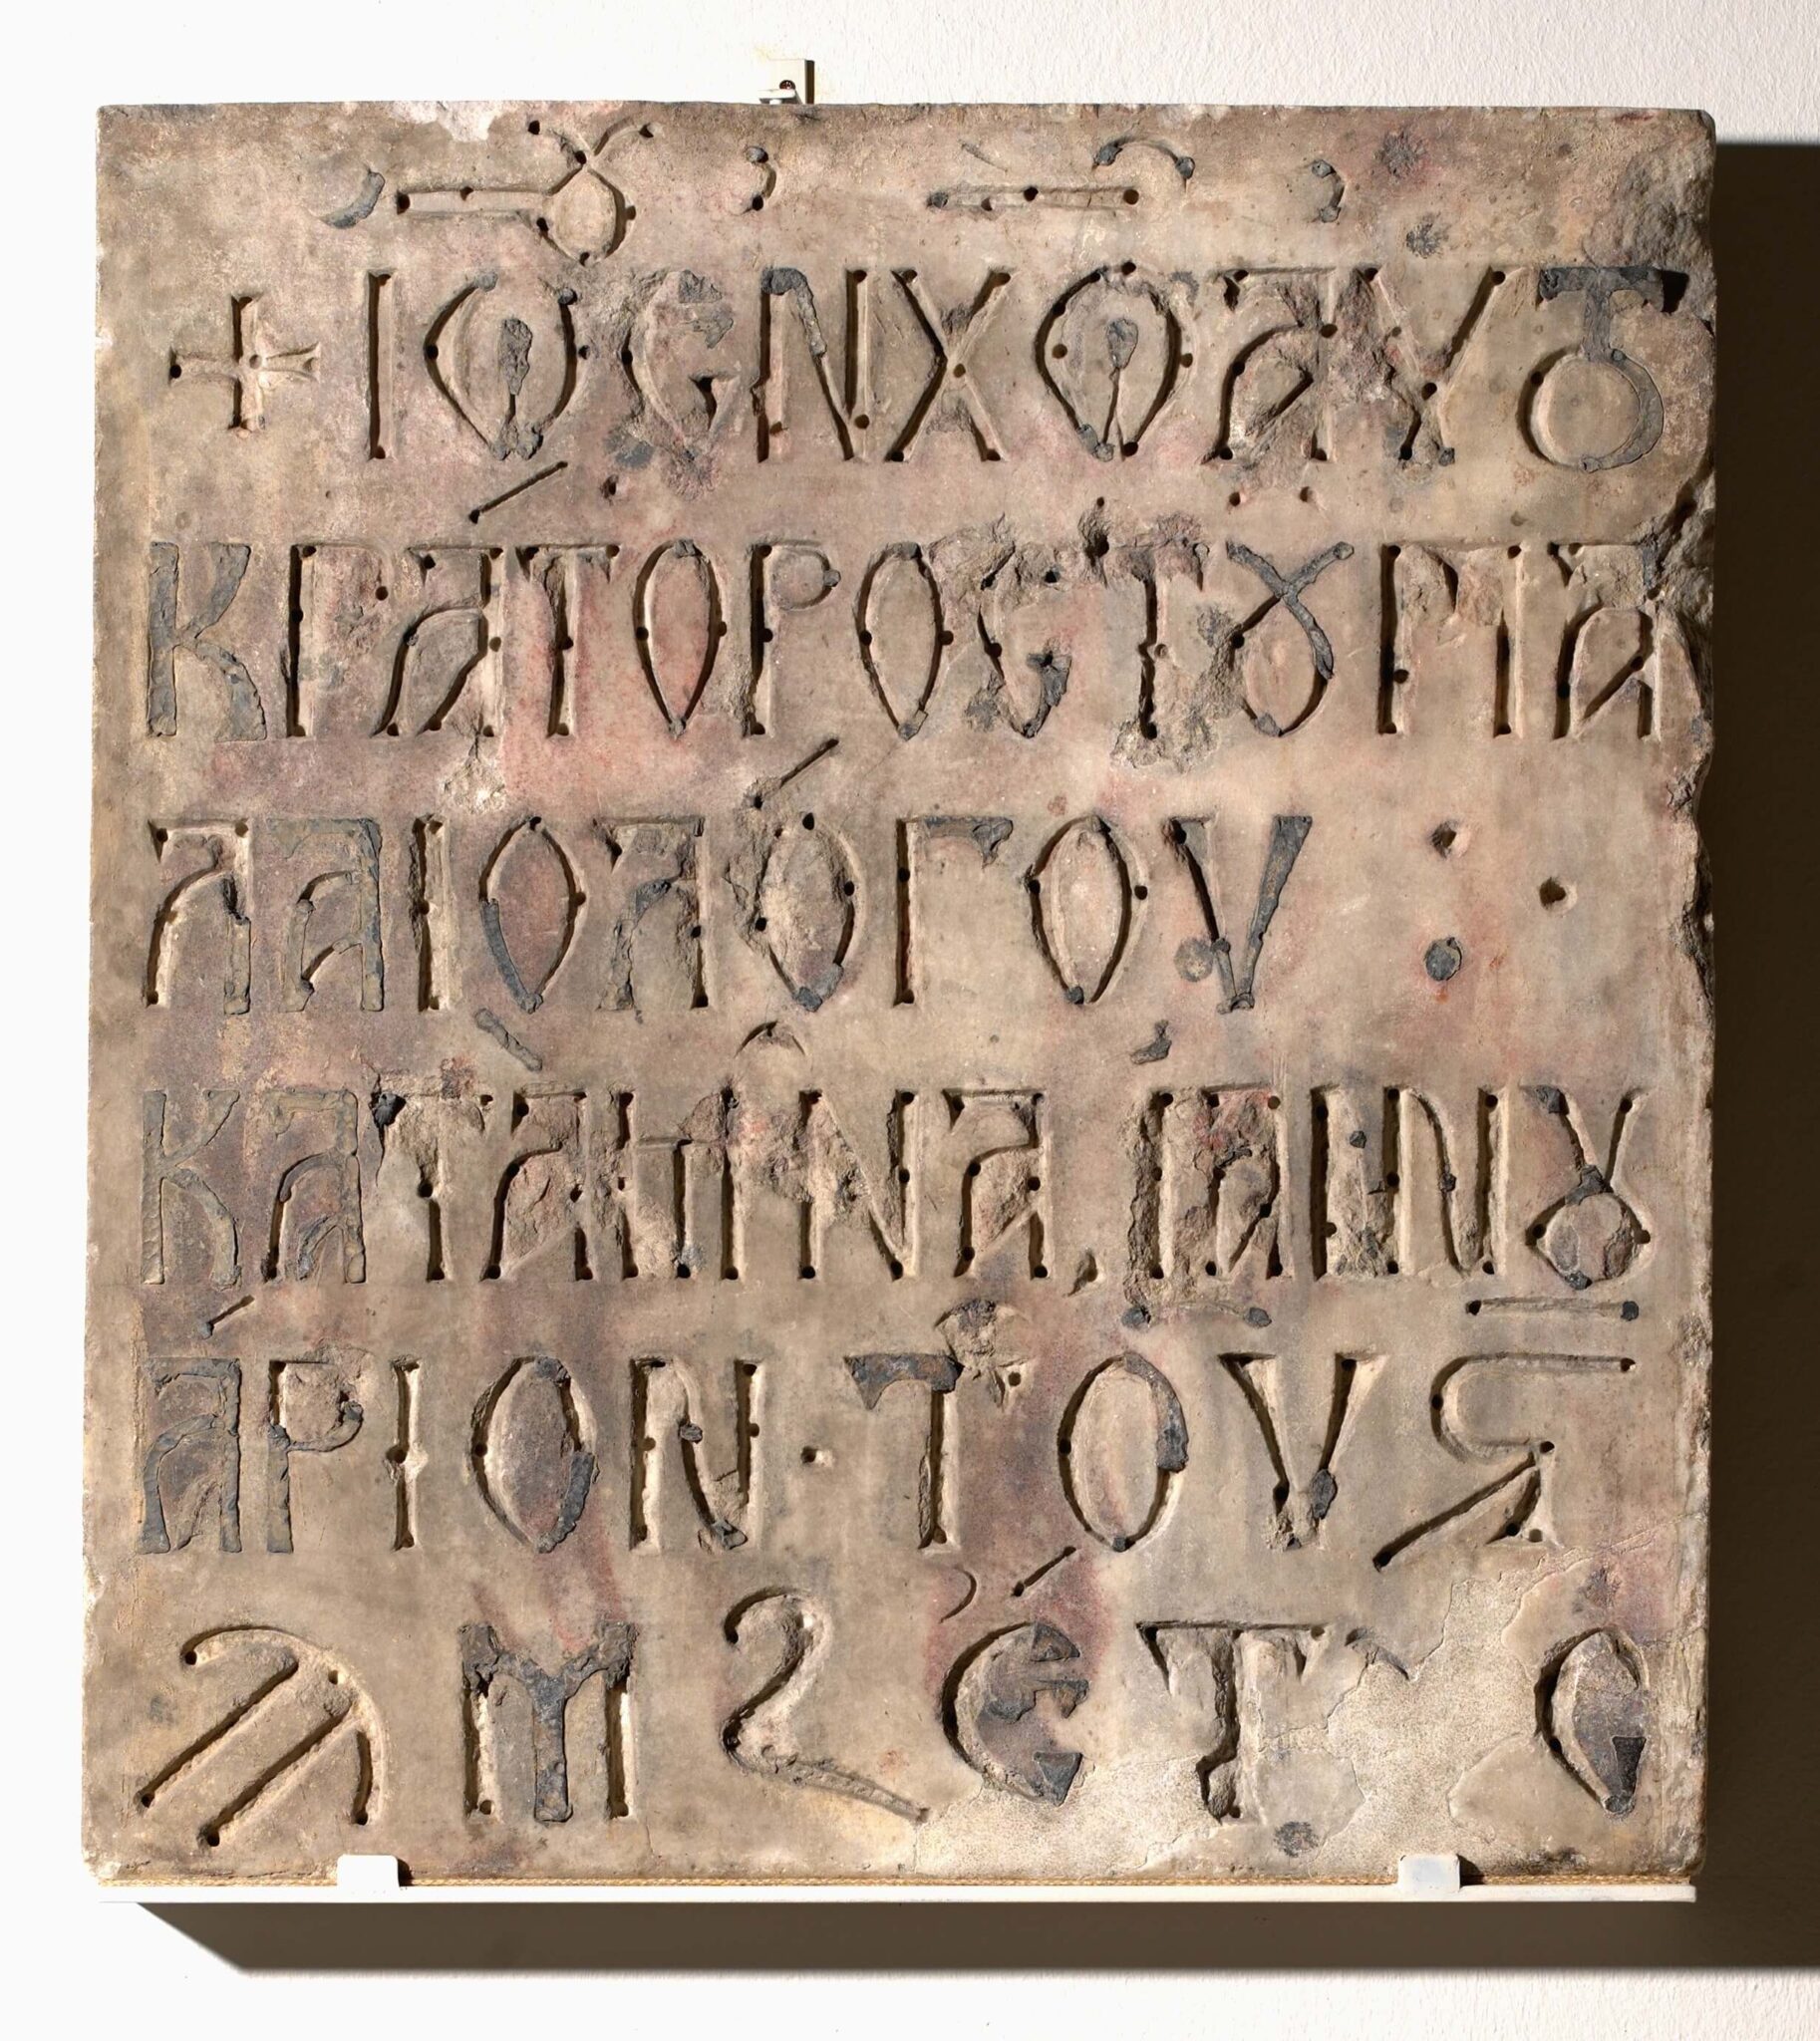 + ΙΩ ΕΝ ΧΩ ΑΥΤΟ
ΚΡΑΤΟΡΟC ΤȢ ΠΑ
ΛΑΙΟΛΟΓΟΥ :·
ΚΑΤΑ ΜΗΝΑ, ΙΑΝΝȢ
ΑΡΙΟΝ · ΤΟΥ Ϛ
Ϡ Μ Ϛ ΕΤ C